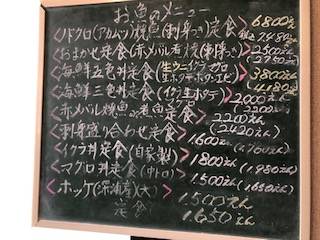 お魚のメニュー
<ノドグロ(アカムツ)焼魚(刺身つき)定食> 6800えん
税込7480えん
<おまかせ定食(赤メバル煮焼(刺身つき)> 2500えん
(2750えん)
<海鮮五色丼定食(生ウニ・イクラ・マグロ 生ホタテ・ボタンエビ)> 3800えん
(4180えん)
<海鮮三色丼定食(イクラ 生ホタテ)> 2000えん
(2200えん)
<赤メバル焼魚or煮魚定食> 2200えん
(2420えん)
<刺身盛り合わせ定食> 1.600えん
(1.760えん)
<イクラ丼定食(自家製)> 1800えん
(1.980えん)
<マグロ丼定食(中トロ)> 1.500えん
(1.650えん)
<ホッケ(深浦産)(大) 定食> 1.500えん
1.650えん